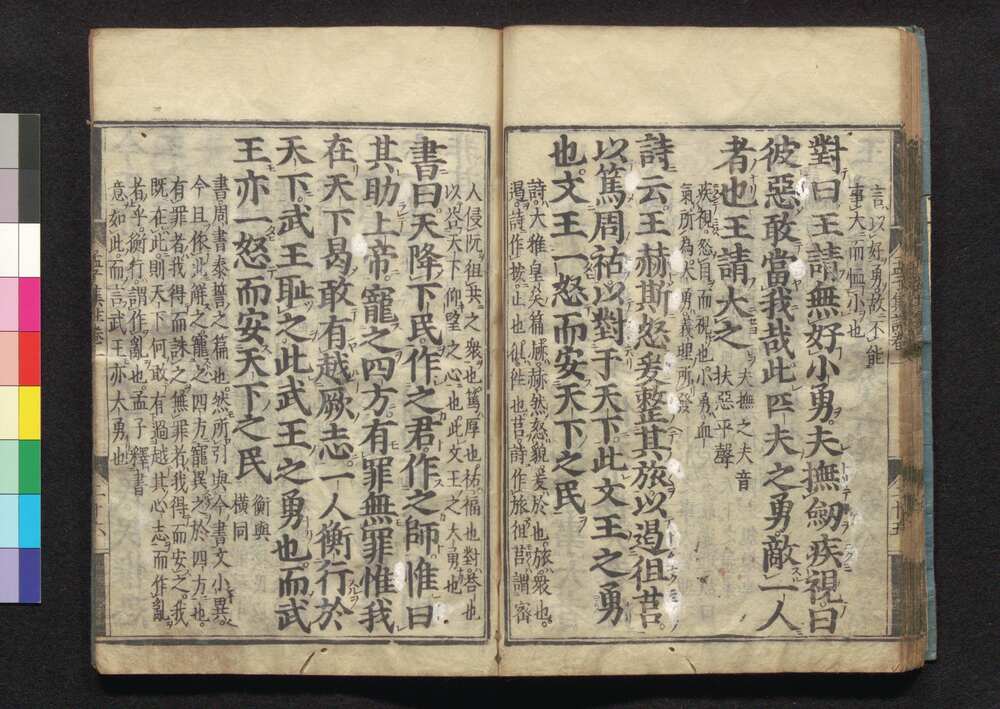 言以好勇故不能
事大而恤小也
對曰王請無好小勇夫撫劒疾視曰
彼惡敢當我哉此匹夫之勇敵一人
者也王請大之
夫撫之夫音
扶惡平聲
疾視怒目而視也小勇血
氣所為大勇義理所發
詩云王赫斯怒爰整其旅以遏徂莒
以篤周祜以對于天下此文王之勇
也文王一怒而安天下之民
詩大雅皇矣篇赫赫然怒貌爰於也旅衆也
遏詩作按止也徂往也莒詩作旅徂莒謂密
人侵阮徂共之衆也篤厚也祜福也對答也
以答天下仰望之心也此文王之大勇也
書曰天降下民作之君作之師惟曰
其助上帝寵之四方有罪無罪惟我
在天下曷敢有越厥志一人衡行於
天下武王耻之此武王之勇也而武
王亦一怒而安天下之民
衡與
橫同
書周書泰誓之篇也然所引與今書文小異
今且依此解之寵之四方寵異之於四方也
有罪者我得而誅之無罪者我得而安之我
既在此則天下何敢有過越其心志而作亂
者乎衡行謂作亂也孟子釋書
意如此而言武王亦大勇也